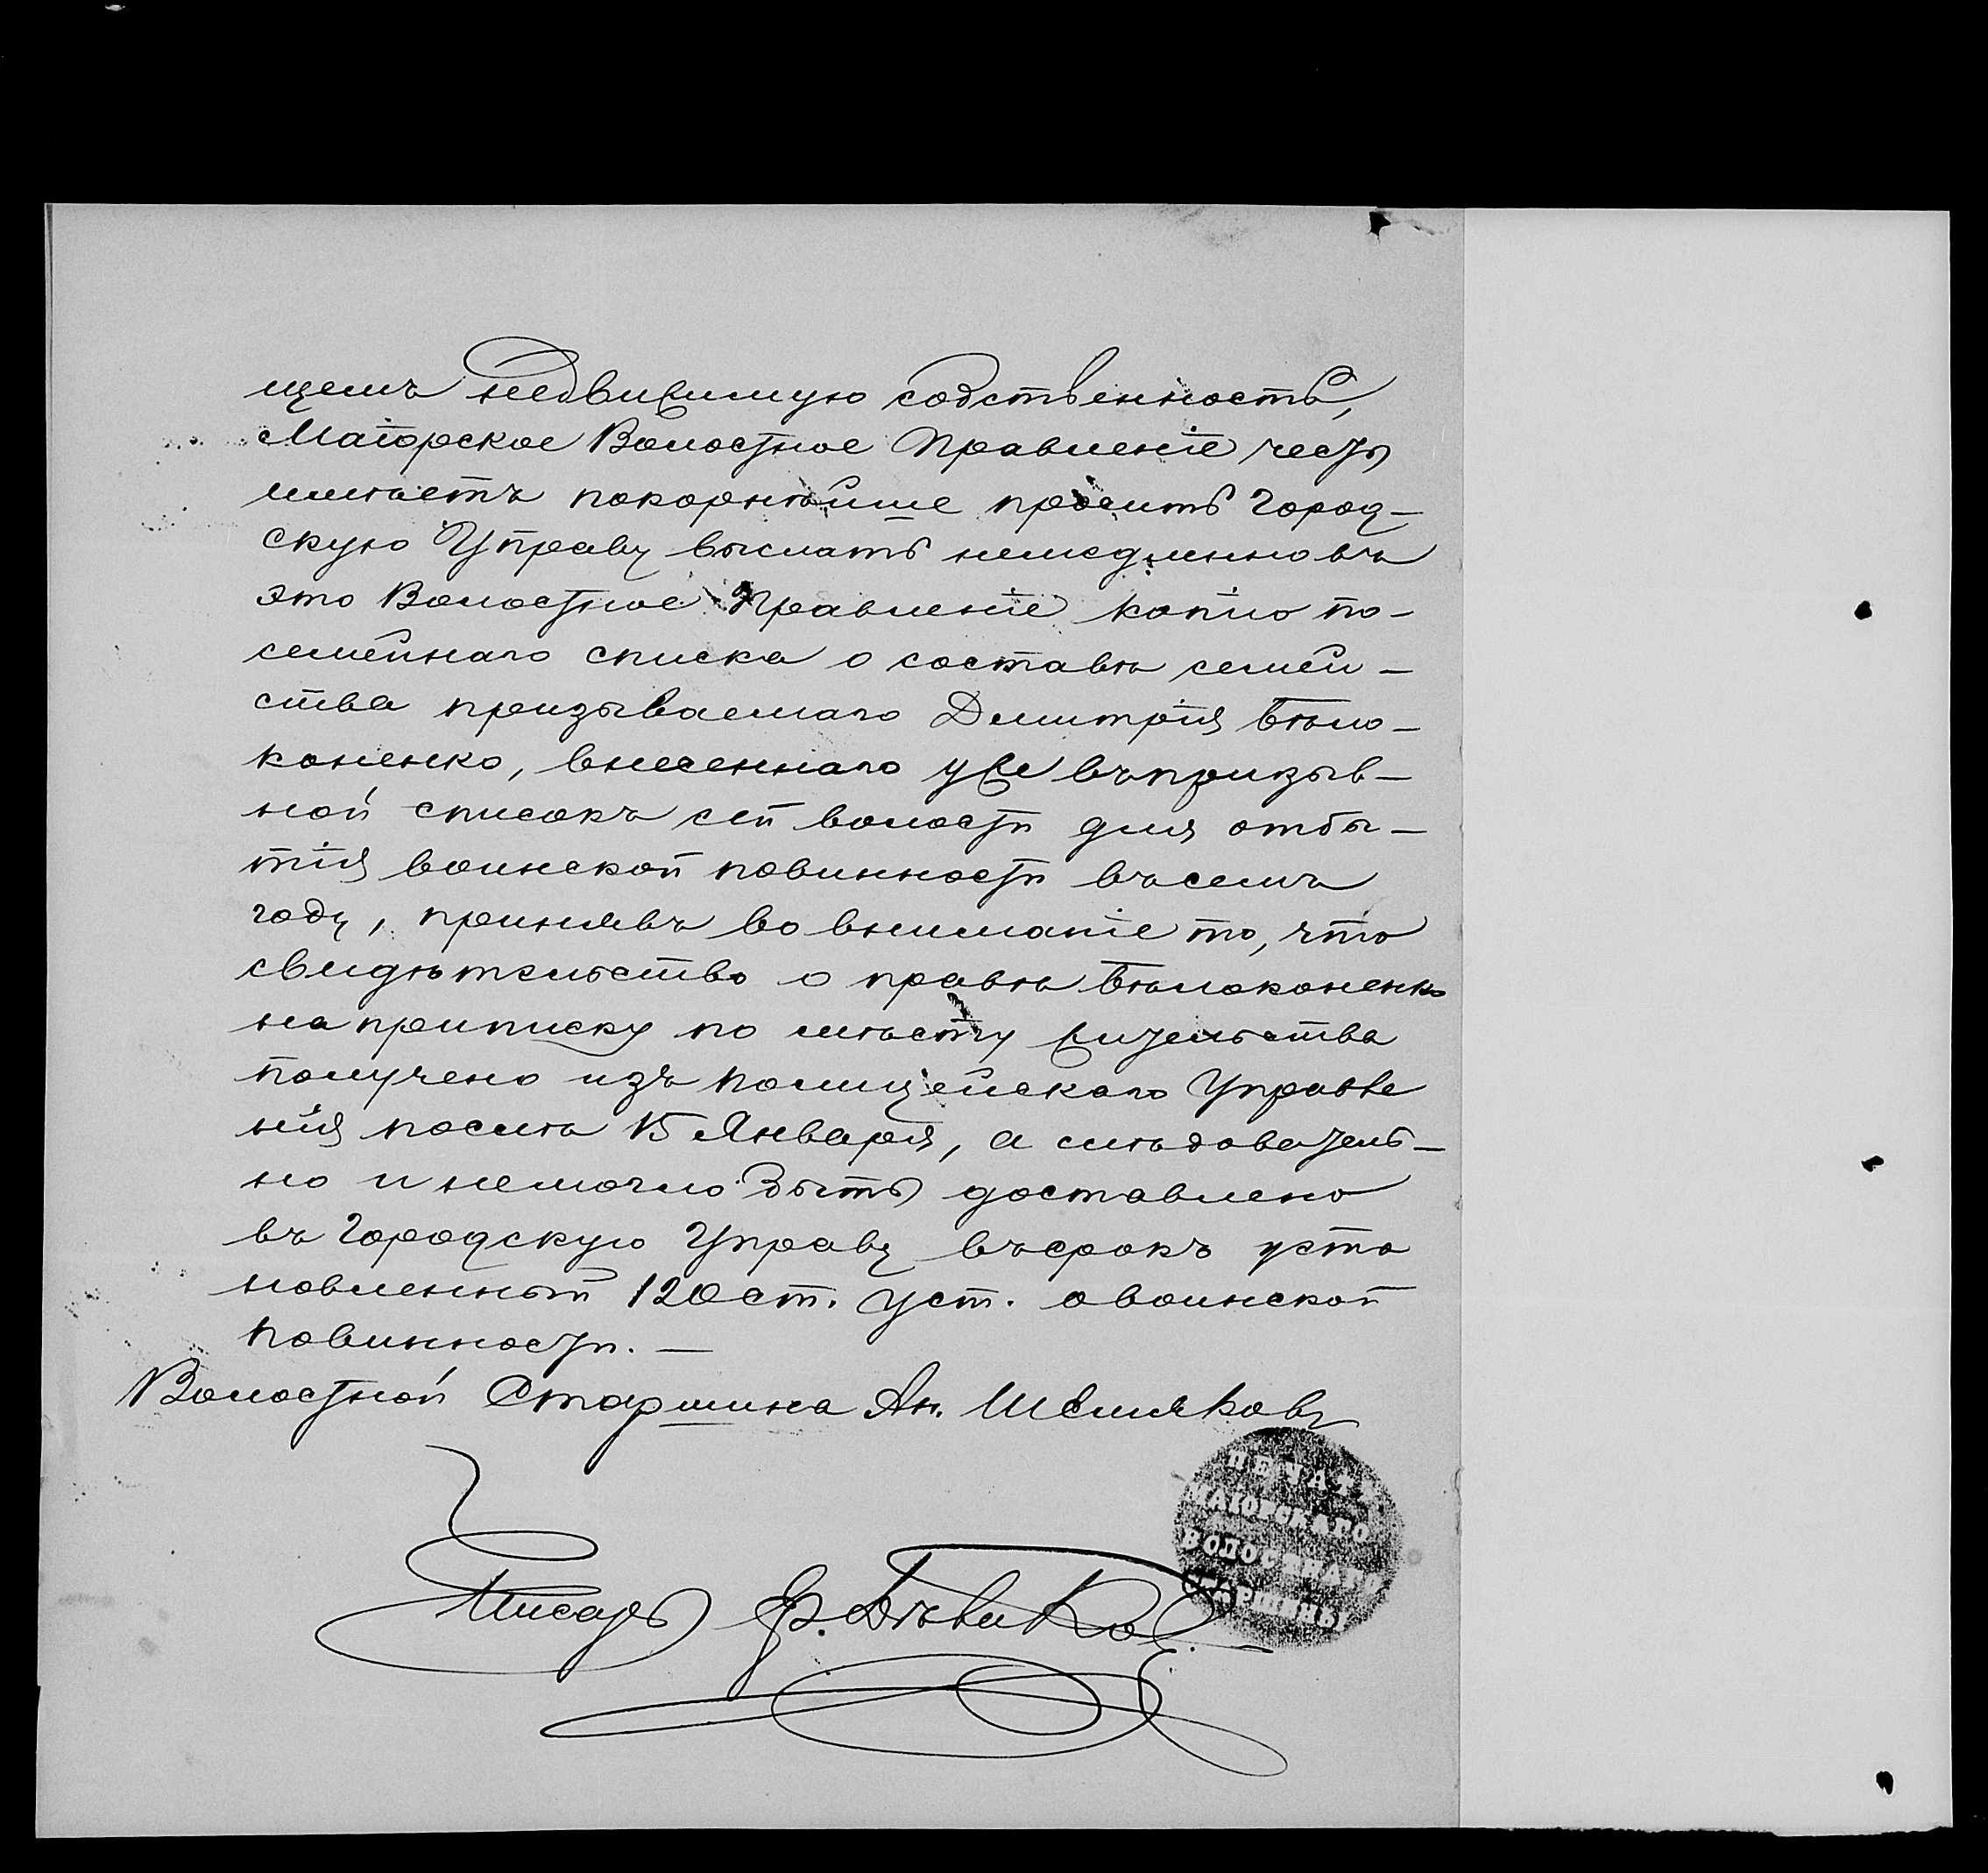 щемъ недвижимую собственность,
Маiорское Волостное Правленiе честь
имѣетъ покорнѣйше просить Город-
скую Управу выслать немедленно въ
это Волостное Правленiе копiю по-
семейнаго списка о составѣ семей-
ства призываемаго Димитрiя Бѣло-
коненко, внесеннаго уже въ призыв-
ной списокъ сей волости для отбы-
тiя воинской повинности въ семъ
году, принявъ во вниманiе то, что
свидѣтельство о правѣ Бѣлоконенко
на приписку по мѣсту жительства
получено изъ Полицейскаго Управле
нiя послѣ 15 Января, а слѣдователь-
но и немогло быть доставлено
въ Городскую Управу въ срокъ уста
новленный 120 ст. Уст. о воинской
повинности. —
Волостной Старшина Ан. Шемяковъ
Писарь
ПЕЧАТЬ
МАIОРСКАГО
ВОЛОСТНАГО
СТАРШИНЫ